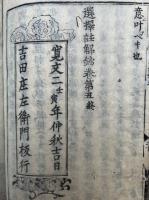 意叶ヘキ也
選擇註解鈔卷第五終
寛文二壬寅年仲秋吉日
吉田庄左衛門板行